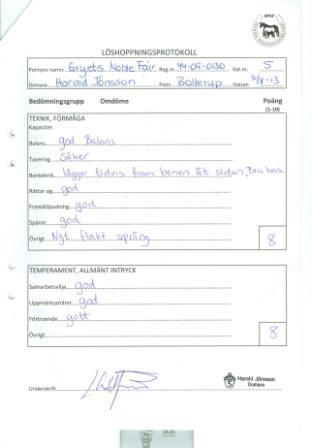 SPAF
LÖSHOPPNINGSPROTOKOLL
Ponnyns namn: Gryets Noble Fair Reg nr 44-09-0130 Kat nr. 5
Domare: Harald Jönsson Plats: Bollerup Datum 31/8-13
Bedömningsgrupp Omdöme Poäng
(1-10)
TEKNIK, FÖRMÅGA
Kapacitet
Balans god Balans
Taxering säker
Benteknik lägger tidvis fram benen åt sidan, Bra bak
Rättar sig god
Framåtbjudning god
Spänst god
Övrigt Ngt flakt språng 8
TEMPERAMENT, ALLMÄNT INTRYCK
Samarbetsvilja god
Uppmärksamhet god
Förtroende gott
Övrigt 8
Underskrift
Harald Jönsson
Domare